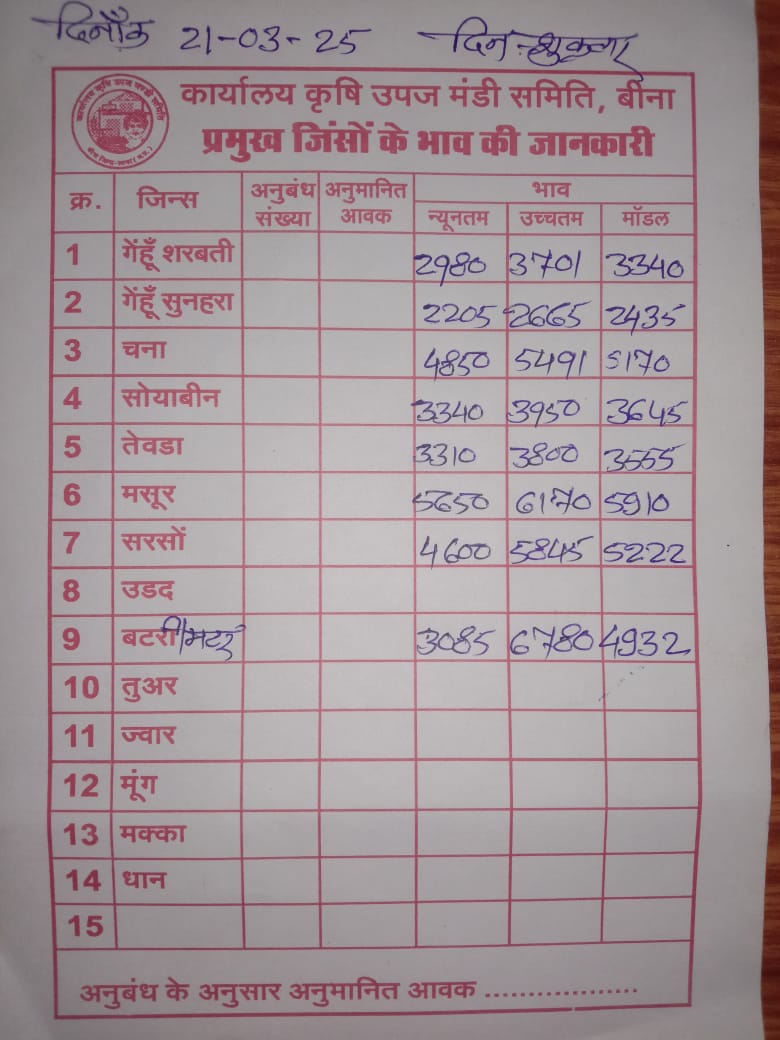 दिनाँक 21-03-25 दिन-शुक्रवार
कार्यालय कृषि उपज मंडी समिति, बीना
प्रमुख जिंसों के भाव की जानकारी
क्र. जिन्स अनुबंध संख्या अनुमानित आवक भाव
न्यूनतम उच्चतम मॉडल
1 गेंहूँ शरबती 2980 3701 3340
2 गेंहूँ सुनहरा 2205 2665 2435
3 चना 4850 5491 5170
4 सोयाबीन 3340 3950 3645
5 तेवडा 3310 3800 3555
6 मसूर 5650 6170 5910
7 सरसों 4600 5845 5222
8 उडद
9 बटरी/मटर 3085 6780 4932
10 तुअर
11 ज्वार
12 मूंग
13 मक्का
14 धान
15
अनुबंध के अनुसार अनुमानित आवक ...................